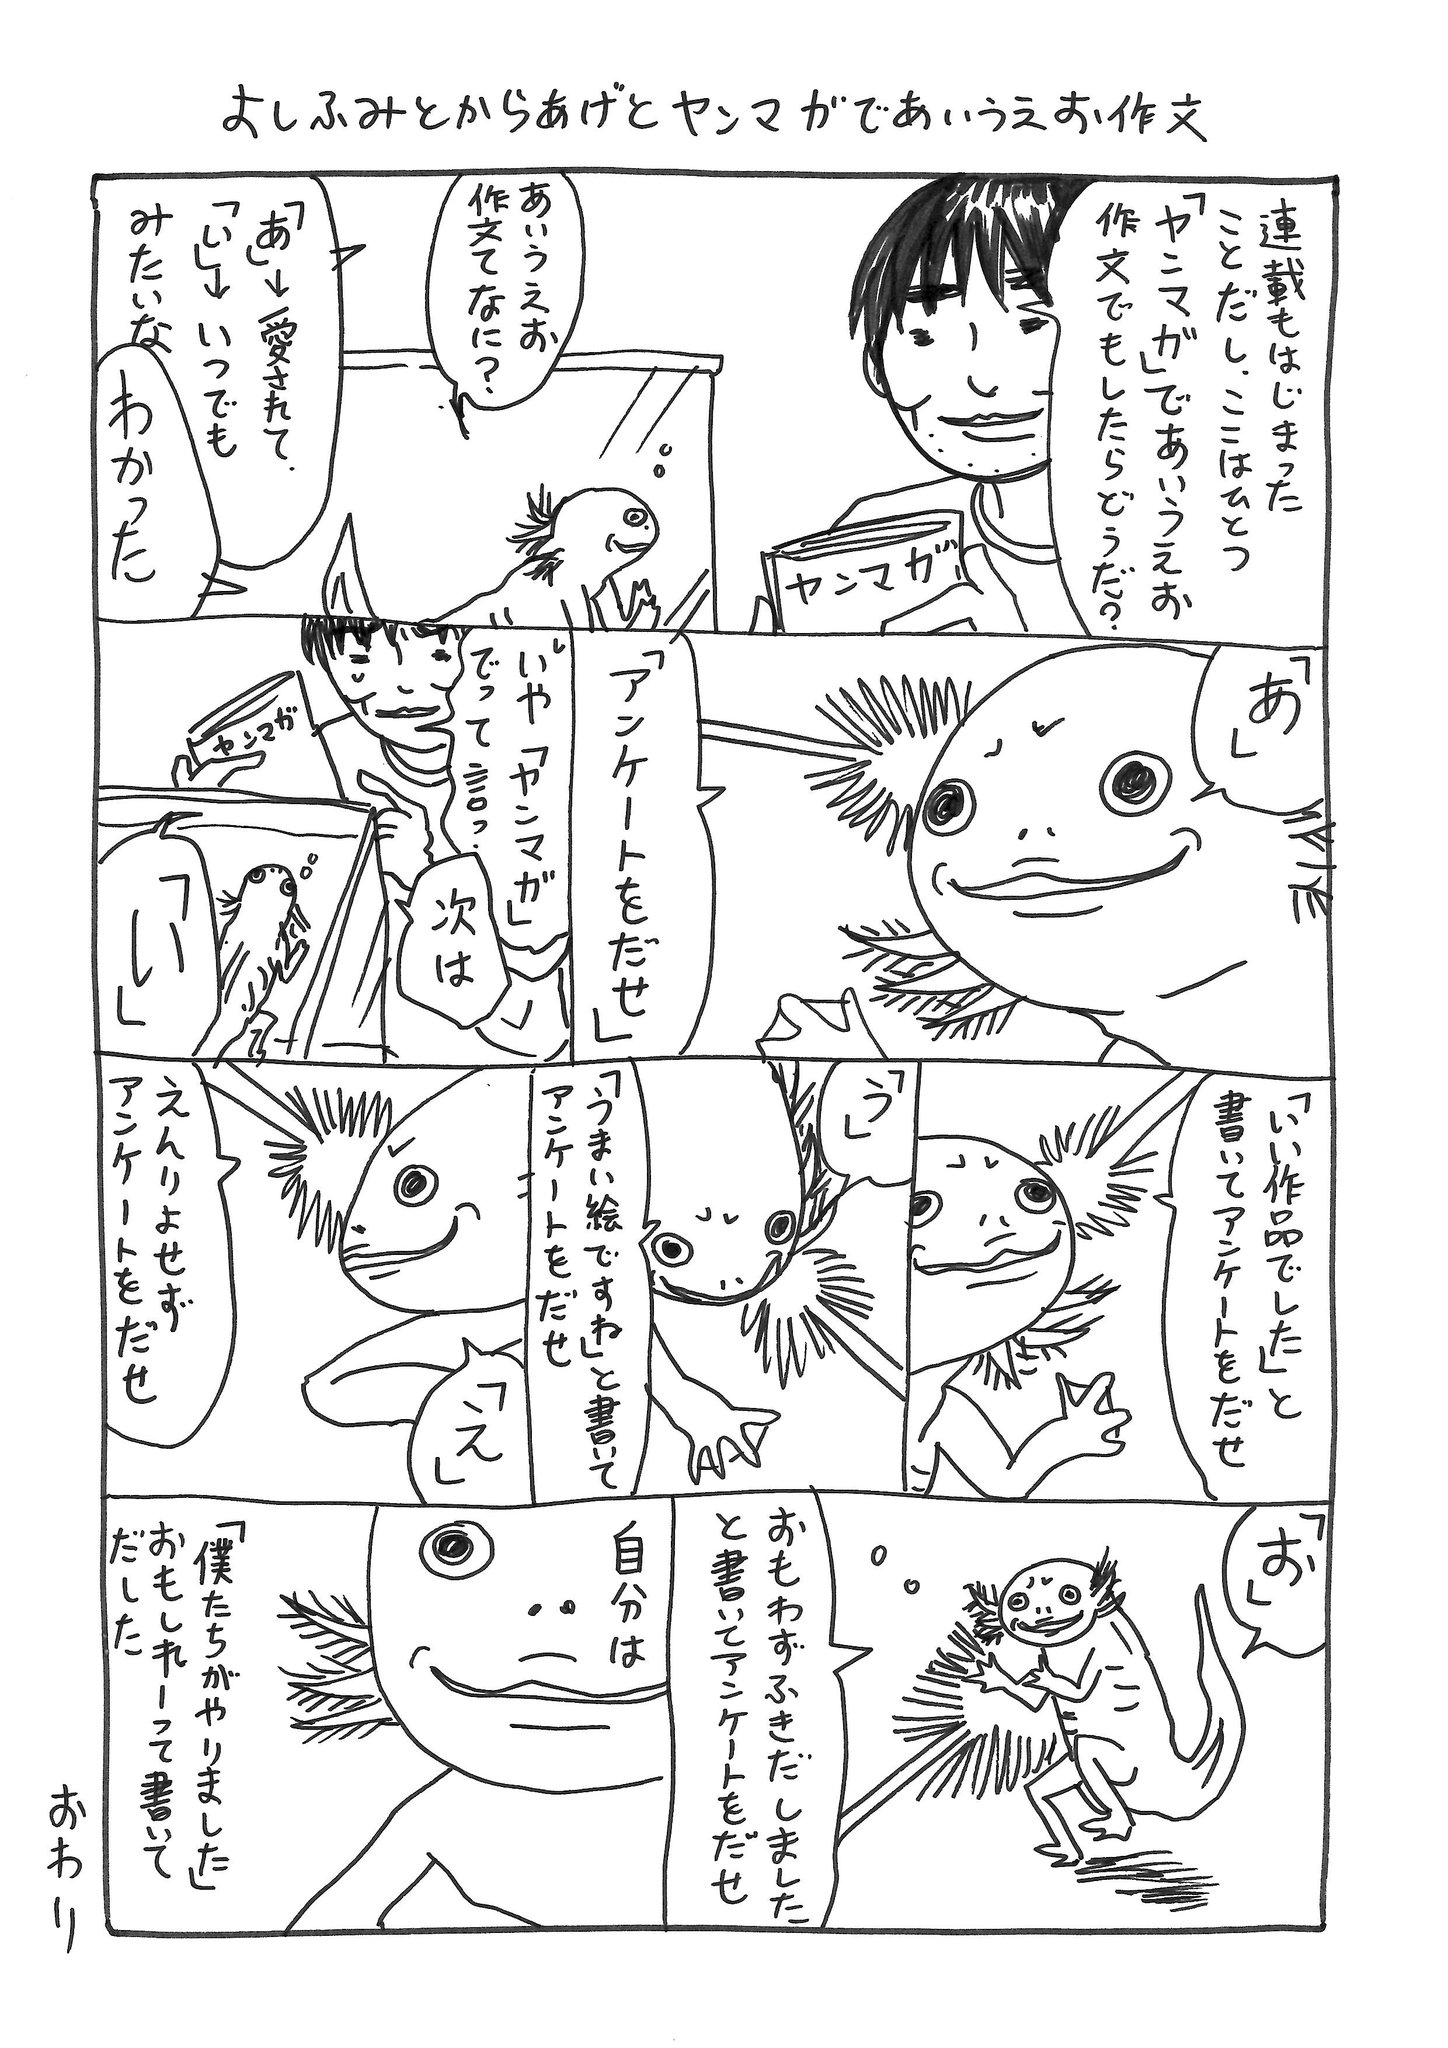 よしふみとからあげとヤンマガであいうえお作文
連載もはじまった
ことだし、ここはひとつ
「ヤンマガ」であいうえお
作文でもしたらどうだ?
ヤンマガ
あいうえお
作文てなに?
「あ」→愛されて、
「い」→いつでも
みたいな
わかった
「あ」
「アンケートをだせ」
いや「ヤンマガ」
でって言っ…
ヤンマガ
次は
「い」
「いい作品でした」と
書いてアンケートをだせ
「う」
「うまい絵ですね」と書いて
アンケートをだせ
「え」
えんりよせず
アンケートをだせ
「お」
おもわずふきだしました
と書いてアンケートをだせ
自分は
「僕たちがやりました」
おもしれーって書いて
だした
おわり